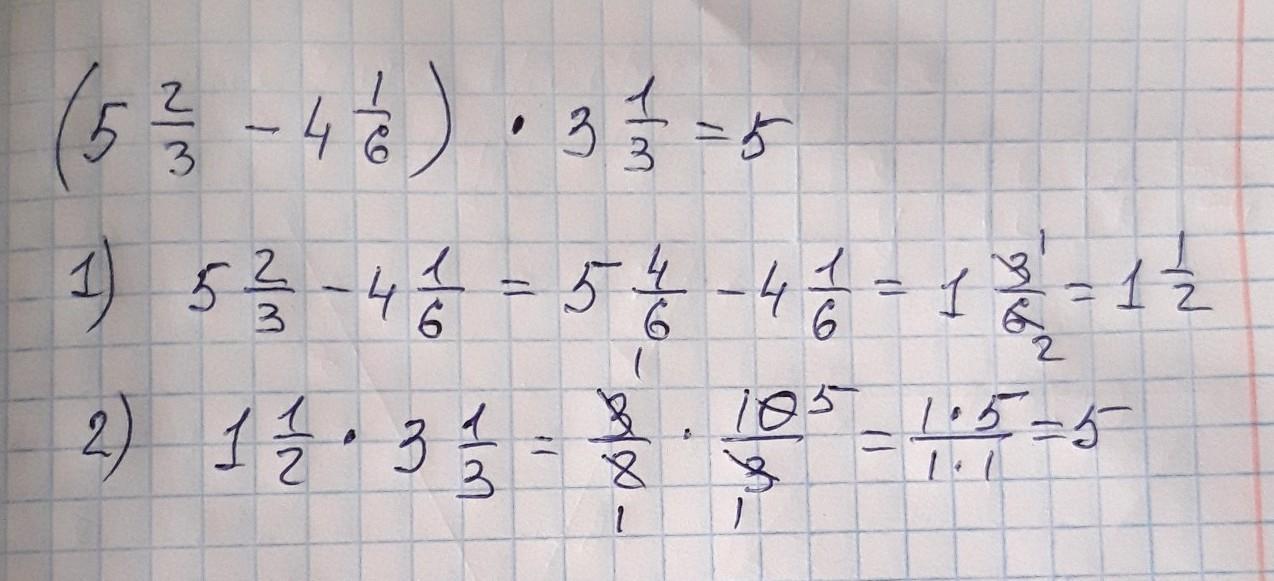 (5 2/3 - 4 1/6) · 3 1/3 = 5
1) 5 2/3 - 4 1/6 = 5 4/6 - 4 1/6 = 1 3/6 = 1 1/2
2) 1 1/2 · 3 1/3 = 3/2 · 10/3 = 1·5/1·1 = 5